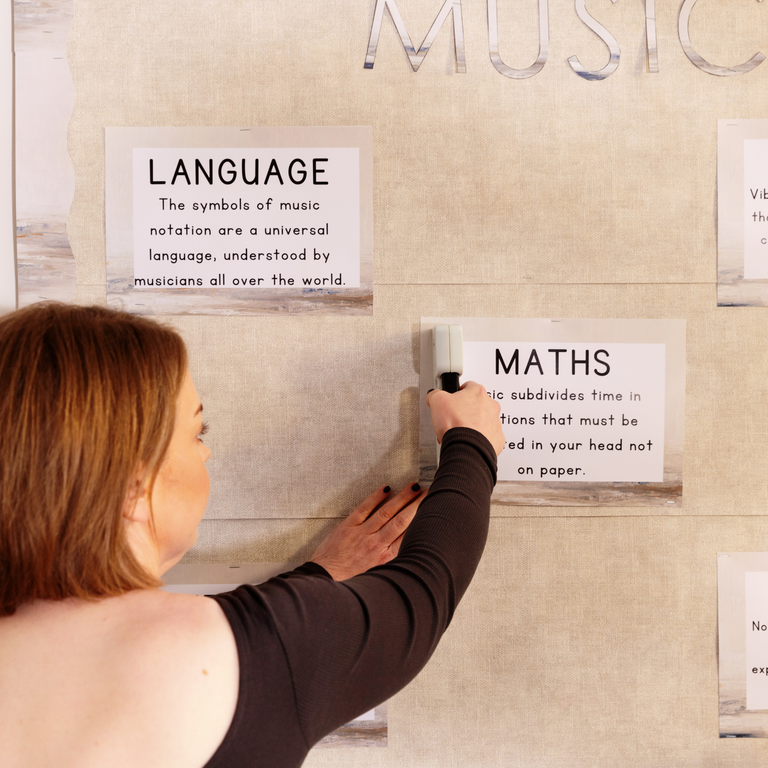 MUSIC
LANGUAGE
The symbols of music
notation are a universal
language, understood by
musicians all over the world.
MATHS
subdivides time in
that must be
in your head not
on paper.
No